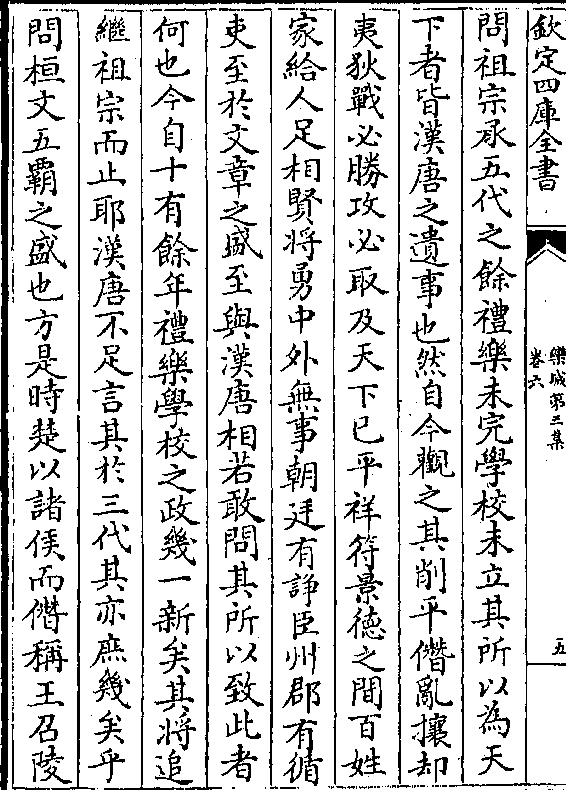 欽定四庫全書
欒城第三集
卷六
五
問祖宗承五代之餘禮樂未完學校未立其所以為天
下者皆漢唐之遺事也然自今觀之其削平僭亂攘却
夷狄戰必勝攻必取及天下已平祥符景徳之間百姓
家給人足相賢將勇中外無事朝廷有諍臣州郡有循
吏至於文章之盛至與漢唐相若敢問其所以致此者
何也今自十有餘年禮樂學校之政幾一新矣其將追
繼祖宗而止耶漢唐不足言其於三代其亦庶幾矣乎
問桓文五霸之盛也方是時楚以諸侯而僭稱王召陵